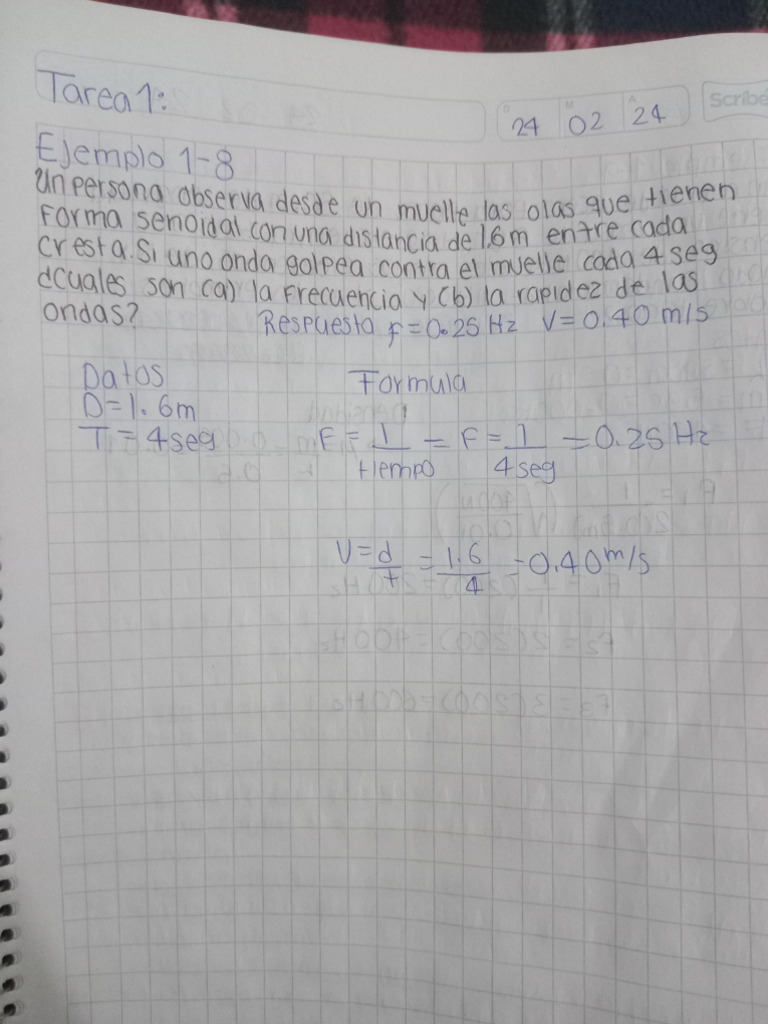 Tarea 1:
D M A
24 02 24
Scribe
Ejemplo 1-8
Un persona observa desde un muelle las olas que tienen
Forma senoidal con una distancia de 1.6m entre cada
cresta. Si uno onda golpea contra el muelle cada 4 seg
dcuales son (a) la Frecuencia y (b) la rapidez de las
ondas?
Respuesta f=0.25 Hz V=0.40 m/s
Datos
D=1.6m
T=4seg
Formula
F= 1/tiempo = F= 1/4seg =0.25 Hz
V= d/t = 1.6/4 =0.40 m/s